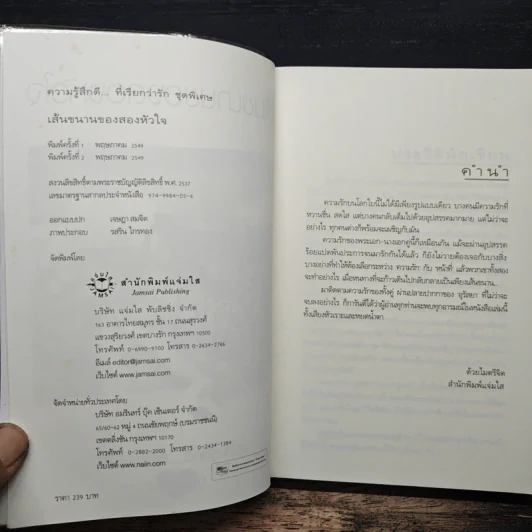 ความรู้สึกดี... ที่เรียกว่ารัก ชุดพิเศษ
เส้นขนานของสองหัวใจ
พิมพ์ครั้งที่ 1 พฤษภาคม 2549
พิมพ์ครั้งที่ 2 พฤษภาคม 2549
สงวนลิขสิทธิ์ตามพระราชบัญญัติลิขสิทธิ์ พ.ศ. 2537
เลขมาตรฐานสากลประจำหนังสือ 974-9984-05-6
ออกแบบปก เจษฎา สมจิต
ภาพประกอบ รสริน ไกรทอง
จัดพิมพ์โดย
สำนักพิมพ์แจ่มใส
Jamsai Publishing
บริษัท แจ่มใส พับลิชชิ่ง จำกัด
163 อาคารไทยสมุทร ชั้น 17 ถนนสุรวงศ์
แขวงสุริยวงศ์ เขตบางรัก กรุงเทพฯ 10500
โทรศัพท์ 0-6990-9100 โทรสาร 0-2634-2766
อีเมล์ editor@jamsai.com
เว็บไซต์ www.jamsai.com
จัดจำหน่ายทั่วประเทศโดย
บริษัท อมรินทร์ บุ๊ค เซ็นเตอร์ จำกัด
65/60-62 หมู่ 4 ถนนชัยพฤกษ์ (บรมราชชนนี)
เขตตลิ่งชัน กรุงเทพฯ 10170
โทรศัพท์ 0-2882-2000 โทรสาร 0-2434-1384
เว็บไซต์ www.naiin.com
ราคา 239 บาท
คำนำ
ความรักบนโลกใบนี้ไม่ได้มีเพียงรูปแบบเดียว บางคนมีความรักที่
หวานชื่น สดใส แต่บางคนกลับเต็มไปด้วยอุปสรรคมากมาย แต่ไม่ว่าจะ
อย่างไร ทุกคนต่างก็พร้อมจะเผชิญกับมัน
ความรักของพระเอก-นางเอกคู่นี้ก็เหมือนกัน แม้จะผ่านอุปสรรค
ร้อยแปดพันประการจนมารักกันได้แล้ว ก็ยังไม่วายต้องเจอกับบางสิ่ง
บางอย่างที่ทำให้ต้องเลือกระหว่าง ความรัก กับ หน้าที่ แล้วพวกเขาทั้งสอง
จะทำอย่างไร เมื่อหนทางที่จะก้าวเดินไปกลับกลายเป็นเพียงเส้นขนาน...
มาติดตามความรักของทั้งคู่ ผ่านปลายปากกาของ อุริสยา ที่ไม่ว่าจะ
จบลงอย่างไร ก็การันตีได้ว่าผู้อ่านทุกท่านจะพบทุกอารมณ์เป็นหนังสือเล่มนี้
ทั้งเสียงหัวเราะและหยดน้ำตา
ด้วยไมตรีจิต
สำนักพิมพ์แจ่มใส